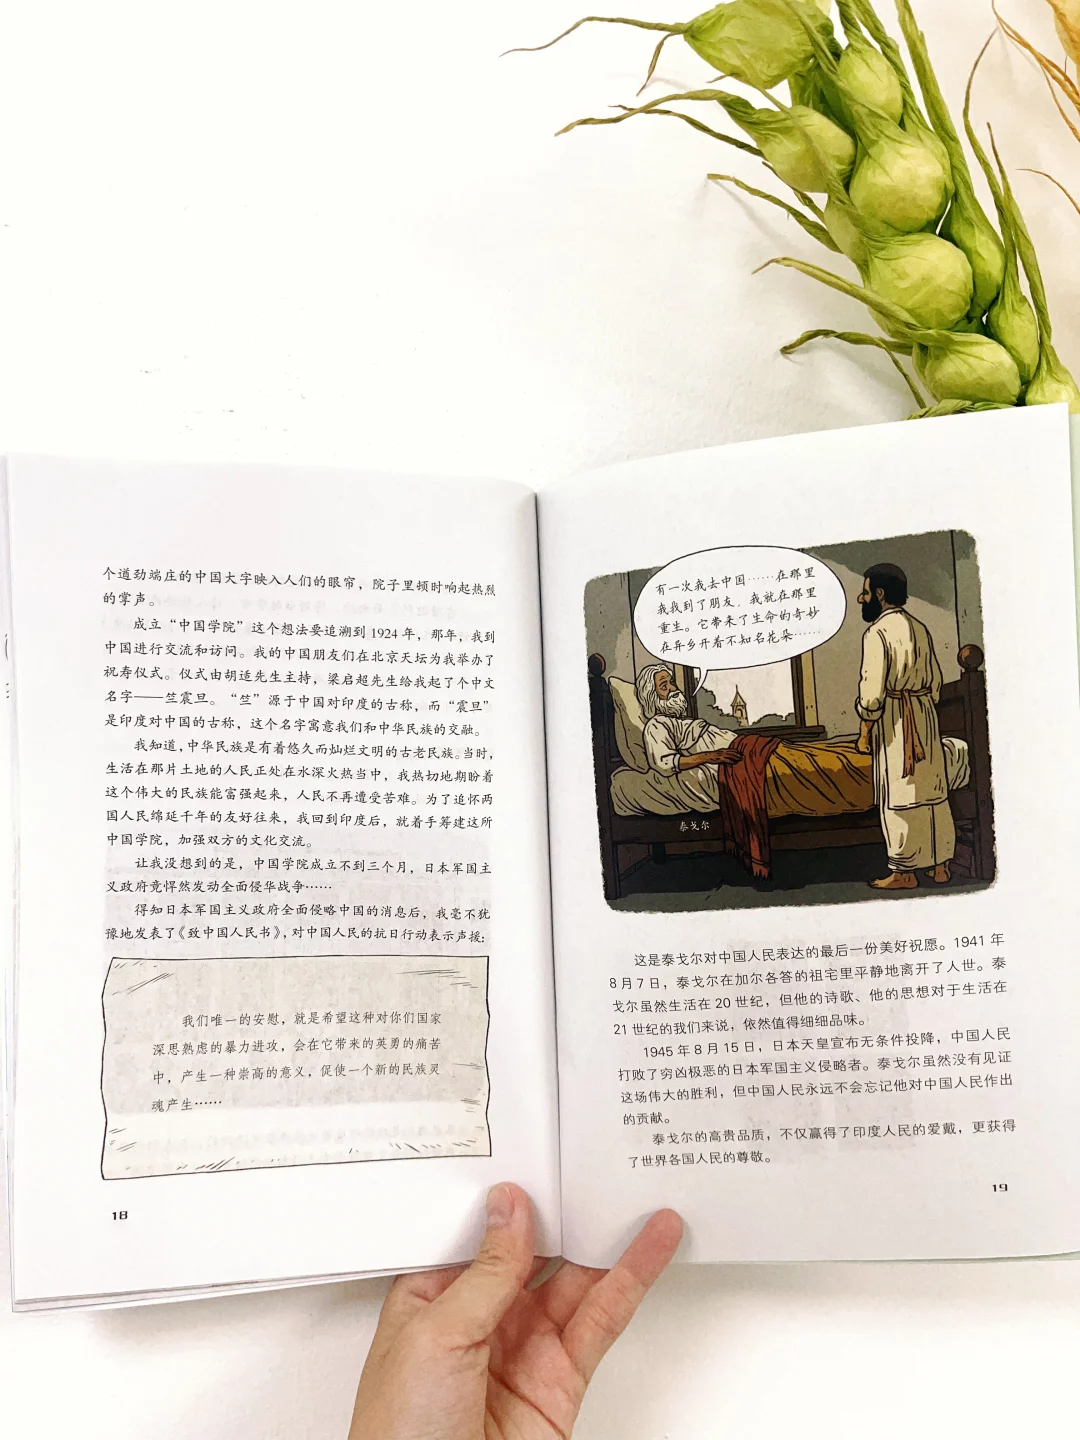 个遒劲端庄的中国大字映入人们的眼帘，院子里顿时响起热烈
的掌声。
成立“中国学院”这个想法要追溯到1924年，那年，我到
中国进行交流和访问。我的中国朋友们在北京天坛为我举办了
祝寿仪式。仪式由胡适先生主持，梁启超先生给我起了个中文
名字——竺震旦。“竺”源于中国对印度的古称，而“震旦”
是印度对中国的古称，这个名字寓意我们和中华民族的交融。
我知道，中华民族是有着悠久而灿烂文明的古老民族。当时，
生活在那片土地的人民正处在水深火热当中，我热切地期盼着
这个伟大的民族能富强起来，人民不再遭受苦难。为了追怀两
国人民绵延千年的友好往来，我回到印度后，就着手筹建这所
中国学院，加强双方的文化交流。
让我没想到的是，中国学院成立不到三个月，日本军国主
义政府竟悍然发动全面侵华战争……
得知日本军国主义政府全面侵略中国的消息后，我毫不犹
豫地发表了《致中国人民书》，对中国人民的抗日行动表示声援：
我们唯一的安慰，就是希望这种对你们国家
深思熟虑的暴力进攻，会在它带来的英勇的痛苦
中，产生一种崇高的意义，促使一个新的民族灵
魂产生……
18
有一次我去中国……在那里
我找到了朋友，我就在那里
重生。它带来了生命的奇妙
在异乡开着不知名花朵……
泰戈尔
这是泰戈尔对中国人民表达的最后一份美好祝愿。1941年
8月7日，泰戈尔在加尔各答的祖宅里平静地离开了人世。泰
戈尔虽然生活在20世纪，但他的诗歌、他的思想对于生活在
21世纪的我们来说，依然值得细细品味。
1945年8月15日，日本天皇宣布无条件投降，中国人民
打败了穷凶极恶的日本军国主义侵略者。泰戈尔虽然没有见证
这场伟大的胜利，但中国人民永远不会忘记他对中国人民作出
的贡献。
泰戈尔的高贵品质，不仅赢得了印度人民的爱戴，更获得
了世界各国人民的尊敬。
19